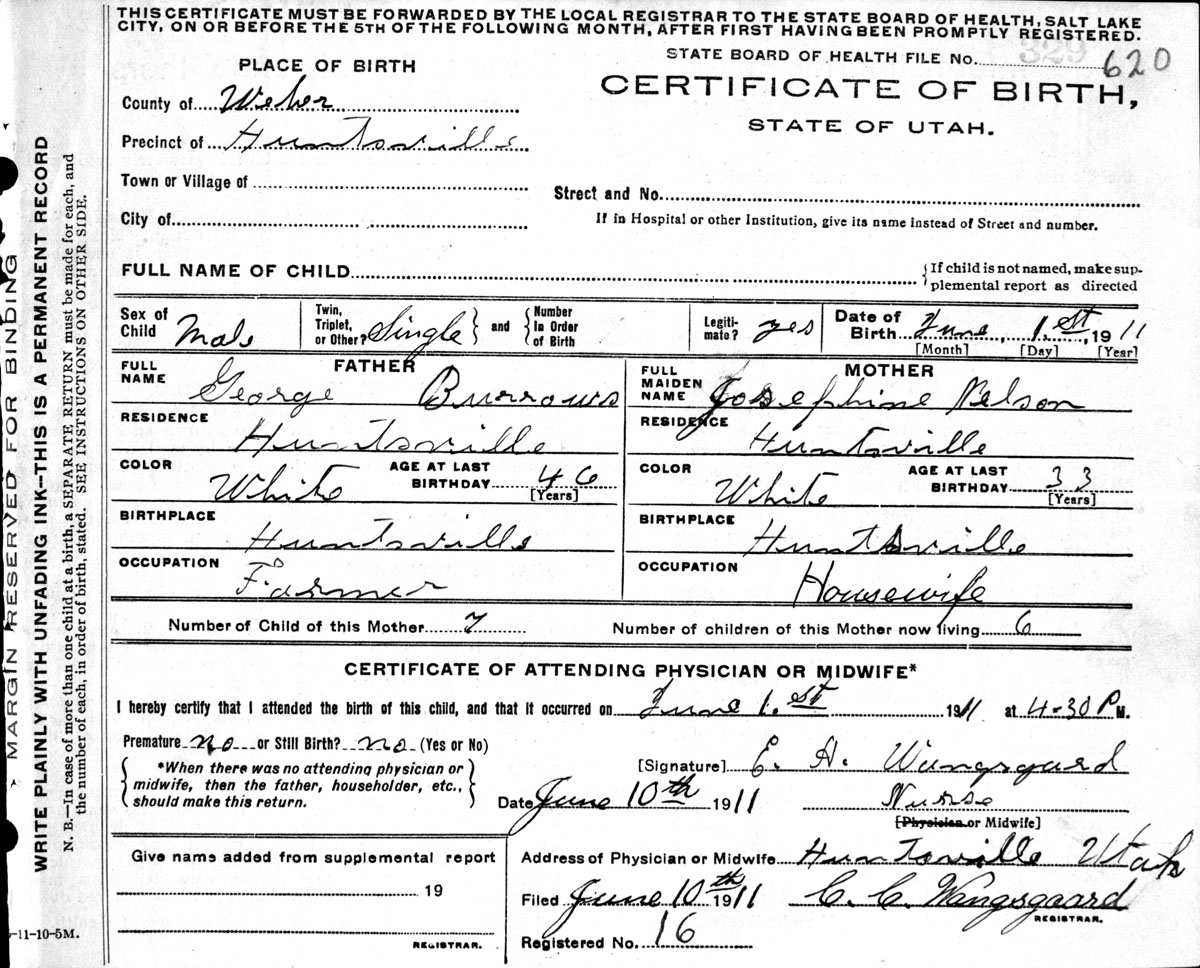 THIS CERTIFICATE MUST BE FORWARDED BY THE LOCAL REGISTRAR TO THE STATE BOARD OF HEALTH, SALT LAKE
CITY, ON OR BEFORE THE 5TH OF THE FOLLOWING MONTH, AFTER FIRST HAVING BEEN PROMPTLY REGISTERED.
STATE BOARD OF HEALTH FILE No. 329 620
PLACE OF BIRTH
CERTIFICATE OF BIRTH,
STATE OF UTAH.
County of Weber
Precinct of Huntsville
Town or Village of
Street and No.
City of
If in Hospital or other Institution, give its name instead of Street and number.
FULL NAME OF CHILD
{If child is not named, make sup-
plemental report as directed
Sex of Child Male
Twin, Triplet, or Other? Single } and { Number In Order of Birth
Legiti-mate? yes
Date of Birth June, 1.st, 1911
[Month] [Day] [Year]
FATHER
FULL NAME George Burrows
RESIDENCE Huntsville
COLOR White AGE AT LAST BIRTHDAY 46 [Years]
BIRTHPLACE Huntsville
OCCUPATION Farmer
MOTHER
FULL MAIDEN NAME Josephine Nelson
RESIDENCE Huntsville
COLOR White AGE AT LAST BIRTHDAY 33 [Years]
BIRTHPLACE Huntsville
OCCUPATION Housewife
Number of Child of this Mother 7 Number of children of this Mother now living 6
CERTIFICATE OF ATTENDING PHYSICIAN OR MIDWIFE*
I hereby certify that I attended the birth of this child, and that it occurred on June 1.st 1911 at 4-30 P M.
Premature no or Still Birth? no (Yes or No)
{ *When there was no attending physician or
midwife, then the father, householder, etc.,
should make this return. }
[Signature] E. A. Wangsgaard
Date June 10th 1911 Nurse
[Physician or Midwife]
Give name added from supplemental report
19
REGISTRAR.
Address of Physician or Midwife Huntsville Utah
Filed June 10th 1911 C. C. Wangsgaard
REGISTRAR.
Registered No. 16
-11-10-5M.
MARGIN RESERVED FOR BINDING
WRITE PLAINLY WITH UNFADING INK—THIS IS A PERMANENT RECORD
N. B.—In case of more than one child at a birth, a SEPARATE RETURN must be made for each, and
the number of each, in order of birth, stated. SEE INSTRUCTIONS ON OTHER SIDE.